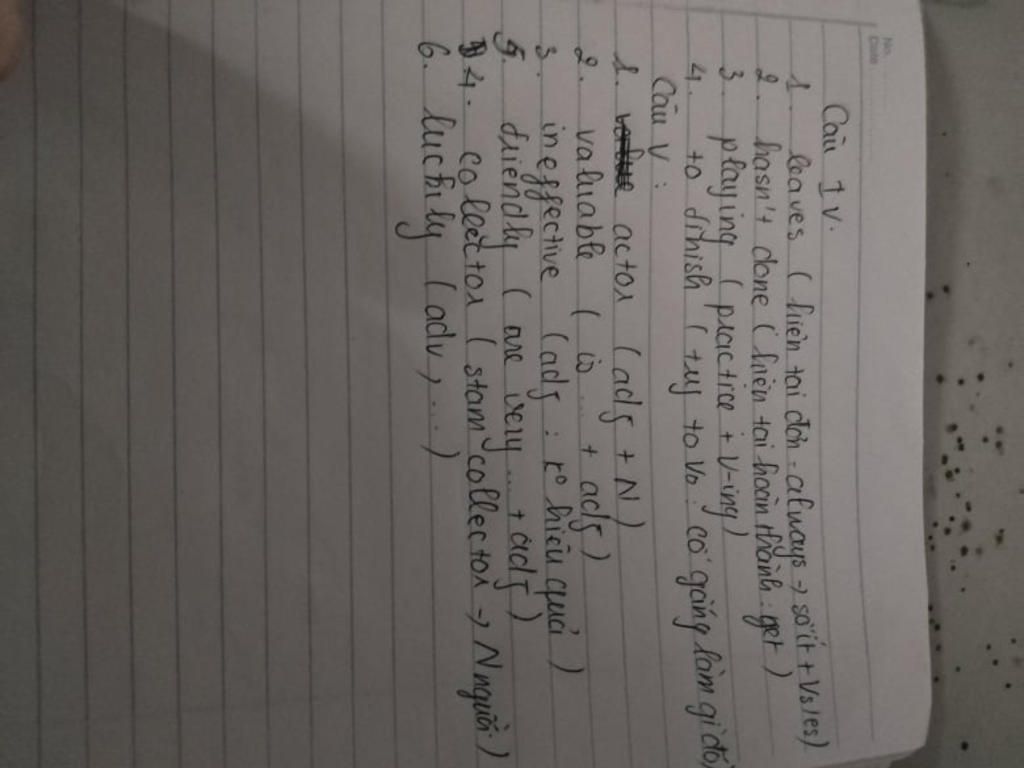 No.
Date
Câu IV.
1. leaves ( hiện tại đơn - always → số ít + Vs/es)
2. hasn't done ( hiện tại hoàn thành . yet )
3. playing ( practice + V-ing)
4. to finish ( try to V₀ : cố gắng làm gì đó
Câu V :
1. actor ( adj + N )
2. valuable ( is ... + adj )
3. ineffective ( adj : k° hiệu quả )
5. friendly ( are very ... + adj )
4. collector ( stam collector → N người )
6. luckily ( adv, ... )